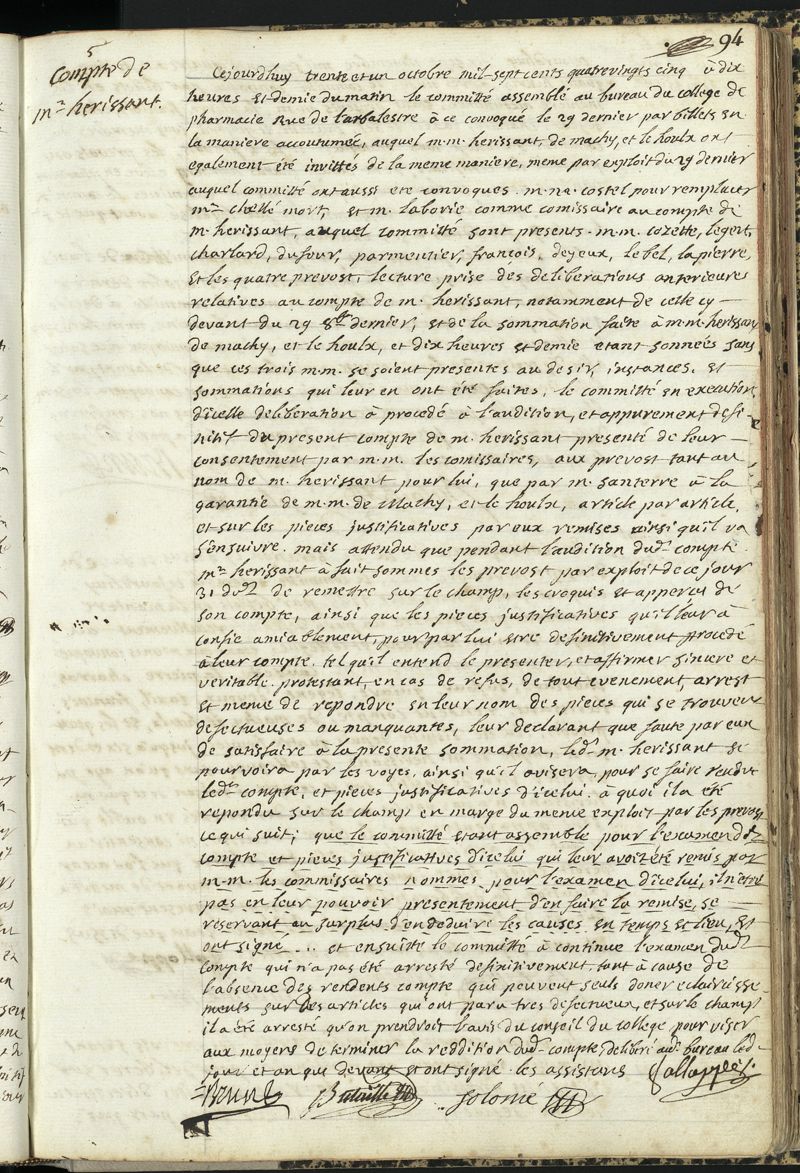 94
5
Compte de
mr. herissant.
Cejourdhuy trente et un octobre mil-sept cents quatrevingts cinq à dix
heures et demie du matin le committé assemblé au bureau du college de
pharmacie Rue de l'arbalestre à ce convoqué le 29 dernier par billets en
la maniere accoutumée, auquel m.m. herissant, de machy, et le houlx ont
egalement été invittés de la meme maniere, meme par exploit du 29 dernier
auquel committé ont aussi eté convoqués m.na. costel pour remplacer
mr. chellé mort, et m. laborie comme comissaire au compte de
m. herissant, auquel committé sont presents m.m. cozette, legent,
charlard, dufour, parmentier, françois, deyeux, lebel, la pierre,
et les quatre prevost, lecture prise des deliberations anterieures
relatives au compte de m. herissant, notamment de celle cy –
devant du 29 8bre dernier, et de la sommation faite à m.m. herissant
de machy, et le houlx, et dix heures et demie etant sonnées sans
que ces trois m.m. se soient presentés au desir, instances, et
sommations qui leur en ont été faites, le committé en execution
d'icelle deliberation à procedé à l'audition, et appurement defi-
nitif du present compte de m. herissant presenté de leur –
consentement par m.m. les comissaires, aux prevost tant au
nom de m. herissant pour lui, que par m. santerre à la
garantie de m.m. de Machy, et le houlx, article par article,
et sur les pieces justificatives par eux remises ainsi qu'il va
s'ensuivre. mais attendu que pendant l'audition dud. compte
mr. herissant à fait sommer les prevost par exploit de ce jour
31 de remettre sur le champ, les croquis et appercu de
son compte, ainsi que les pieces justificatives qu'il leur à
confié amiablement, pour par lui etre definitivement procedé
à leur compte. tel qu'il entend le presenter, et affirmer sincere et
veritable. protestant, en cas de refus, de tout evenement, arrest
et meme de repondre en leur nom des pieces qui se trouveroient
defectueuses ou manquantes, leur declarant que faute par eux
de satisfaire à la presente sommation, led. m. herissant se
pourvoira par les voyes, ainsi qu'il avisera, pour se faire rendre
led. compte, et pieces justificatives d'icelui. à quoi il a été
repondu sur le champ en marge du meme exploit par les prevost
ce qui suit; que le committé etant assemblé pour l'examen dud.
compte et pieces justificatives d'icelui qui leur avoit été remis par
m.m. les commissaires nommés pour l'examen d'icelui, il n'etoit
pas en leur pouvoir presentement d'en faire la remise, se –
reservant au surplus d'en deduire les causes en temps et lieu, et
ont signé ... et ensuitte le committé à continué l'examen dud.
compte qui n'a pas été arresté definitivement, tant à cause de
l'absence des rendents compte qui peuvent seuls doner eclaircisse-
ments sur des articles qui ont paru tres defectueux, et sur le champ
il a été arresté qu'on prendroit l'avis du conseil du college pour viser
aux moyens de terminer la reddition dud. compte, deliberé aud. bureau led.
jour et an que devant et ont signé les assistans
Bataille solomé